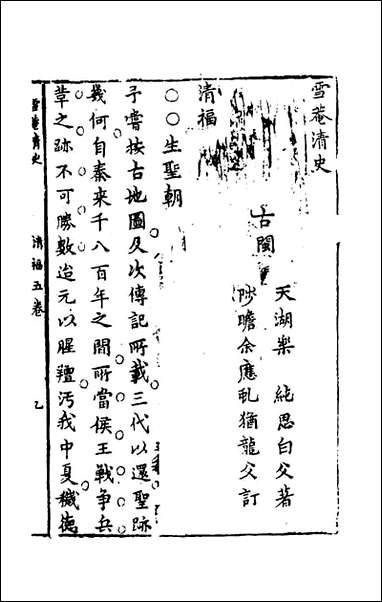 雪菴清史
古閩
天湖樂 純思白父著
陟瞻余應虬猶龍父訂
清福
○○生聖朝
予嘗按古地圖及次傳記所載三代以還聖跡
幾何自秦來千八百年之間所當侯王戰爭兵
革之跡不可勝數迨元以腥羶汚我中夏穢德
雪菴清史
清福五卷
乙